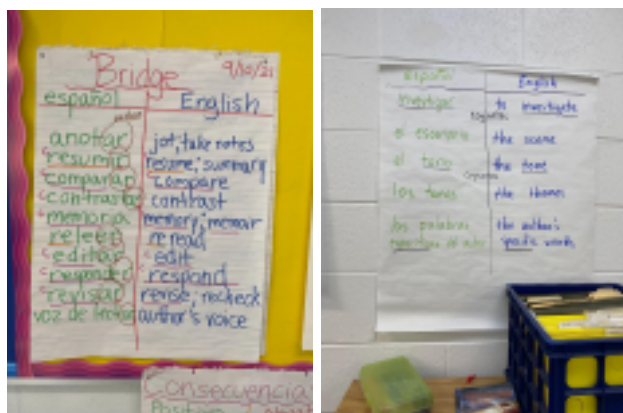 Bridge 9/10/21
español English
anotar jot, take notes
resumir resume, summary
comparar compare
contrastar contrast
memoria memory, memoir
releer reread
editar edit
responder respond
revisar revise, recheck
voz de author's voice
Consecuencia
español English
investigar to investigate
el escenario the scene
el tono the tone
los temas the themes
las palabras the author's
específicas del autor specific words